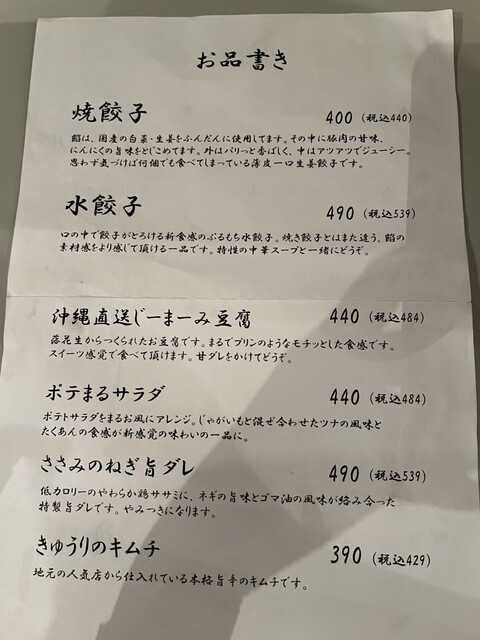 お品書き
焼餃子 400 (税込440)
餡は、国産の白菜・生姜をふんだんに使用してます。その中に豚肉の甘味、
にんにくの旨味をとじこめてます。外はパリっと香ばしく、中はアツアツでジューシー。
思わず気づけば何個でも食べてしまっている薄皮一口生姜餃子です。
水餃子 490 (税込539)
口の中で餃子がとろける新食感のぷるもち水餃子。焼き餃子とはまた違う、餡の
素材感をより感じて頂ける一品です。特性の中華スープと一緒にどうぞ。
沖縄直送じーまーみ豆腐 440 (税込484)
落花生からつくられたお豆腐です。まるでプリンのようなモチッとした食感です。
スイーツ感覚で食べて頂けます。甘ダレをかけてどうぞ。
ポテまるサラダ 440 (税込484)
ポテトサラダをまるお風にアレンジ。じゃがいもと混ぜ合わせたツナの風味と
たくあんの食感が新感覚の味わいの一品に。
ささみのねぎ旨ダレ 490 (税込539)
低カロリーのやわらか鶏ササミに、ネギの旨味とゴマ油の風味が絡み合った
特製旨ダレです。やみつきになります。
きゅうりのキムチ 390 (税込429)
地元の人気店から仕入れている本格旨辛のキムチです。